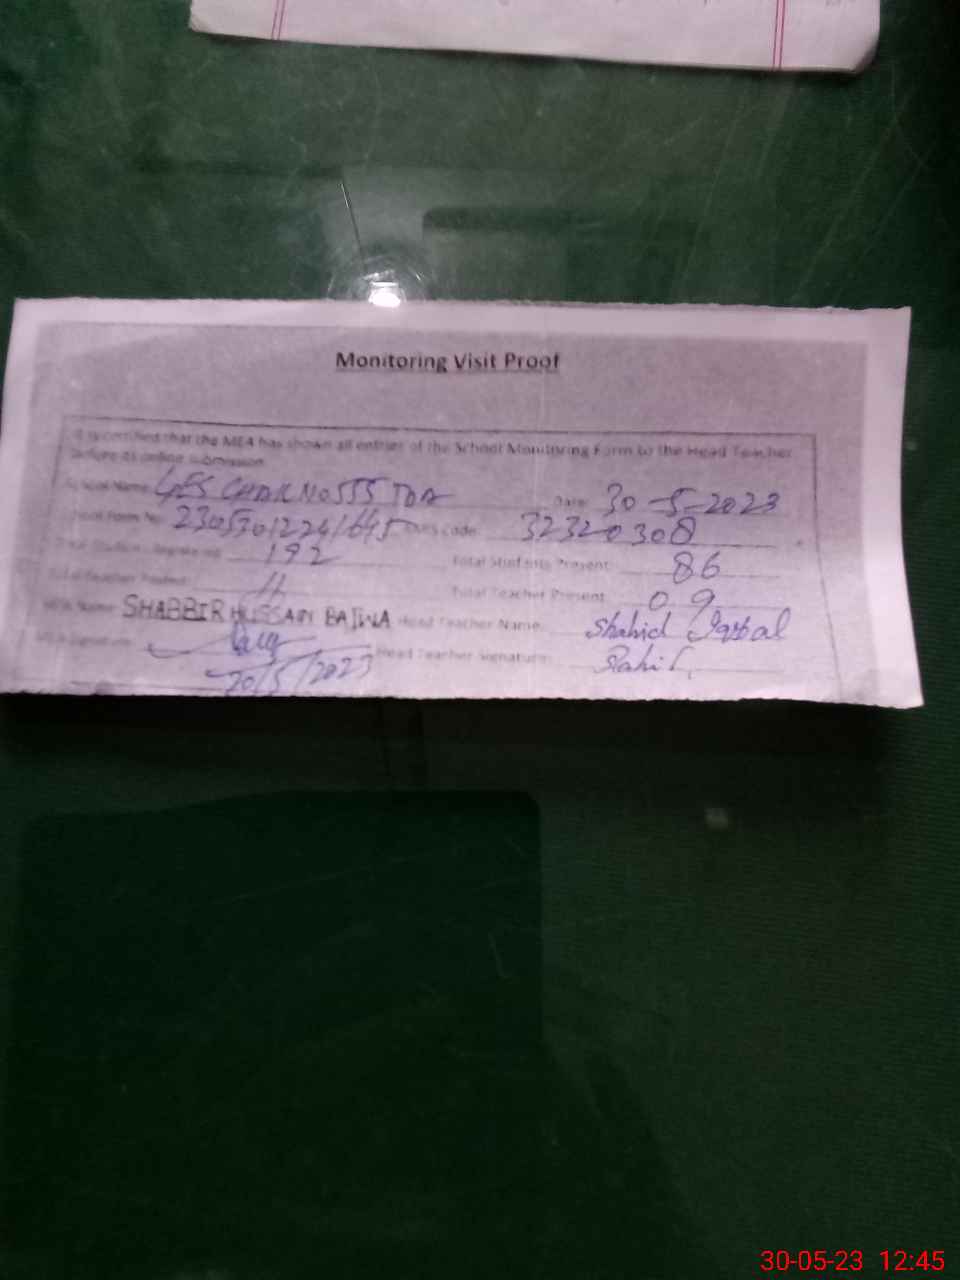 Monitoring Visit Proof
It is certified that the MEA has shown all entries of the School Monitoring Form to the Head Teacher
before its online submission
School Name: GES CHAK NO 555 TDA Date: 30-5-2023
School Form No. Code: 32320308
192 Total Students Present: 86
Total Teacher 11 Total Teacher Present: 09
MEA Name: SHABBIR HUSSAIN BAJWA Head Teacher Name: Shahid Iqbal
MEA Signature: Head Teacher Signature:
30/5/2023
30-05-23 12:45